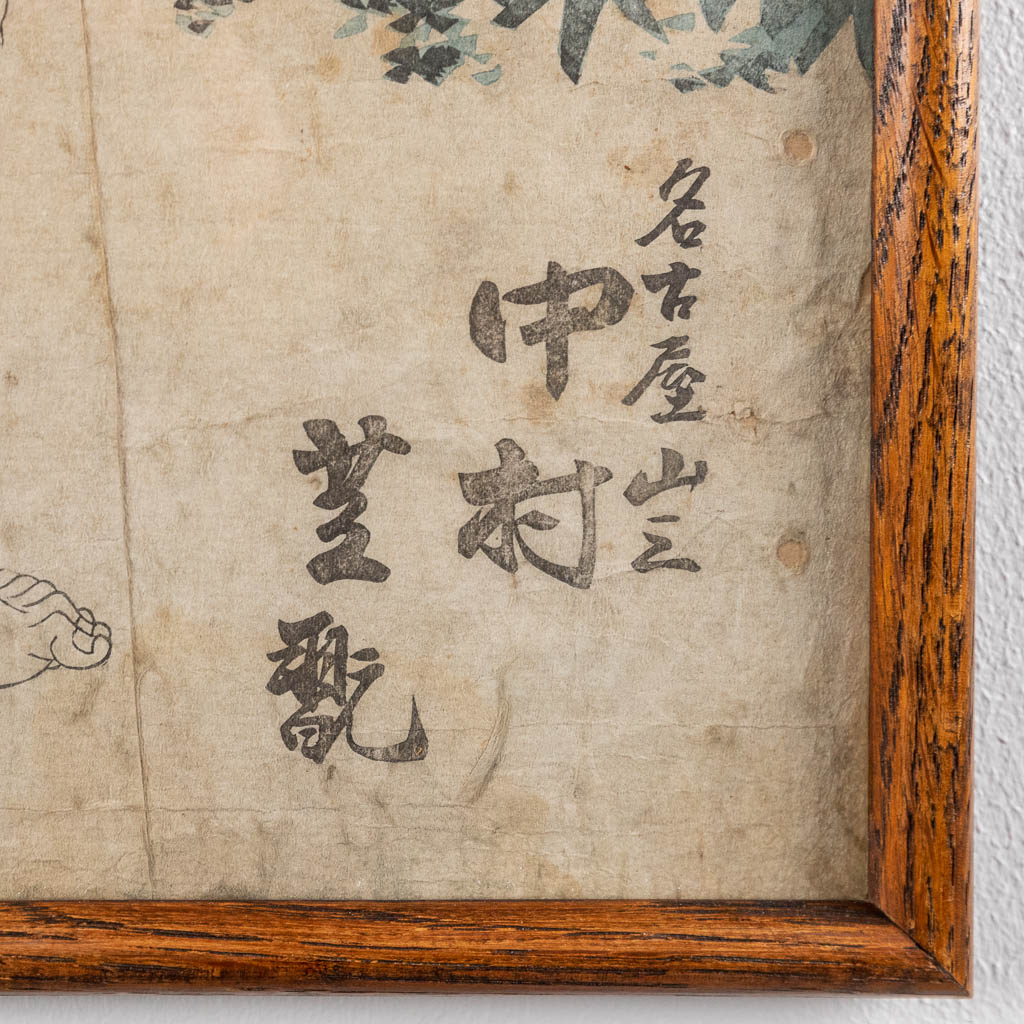 名古屋山三
中村
芝翫